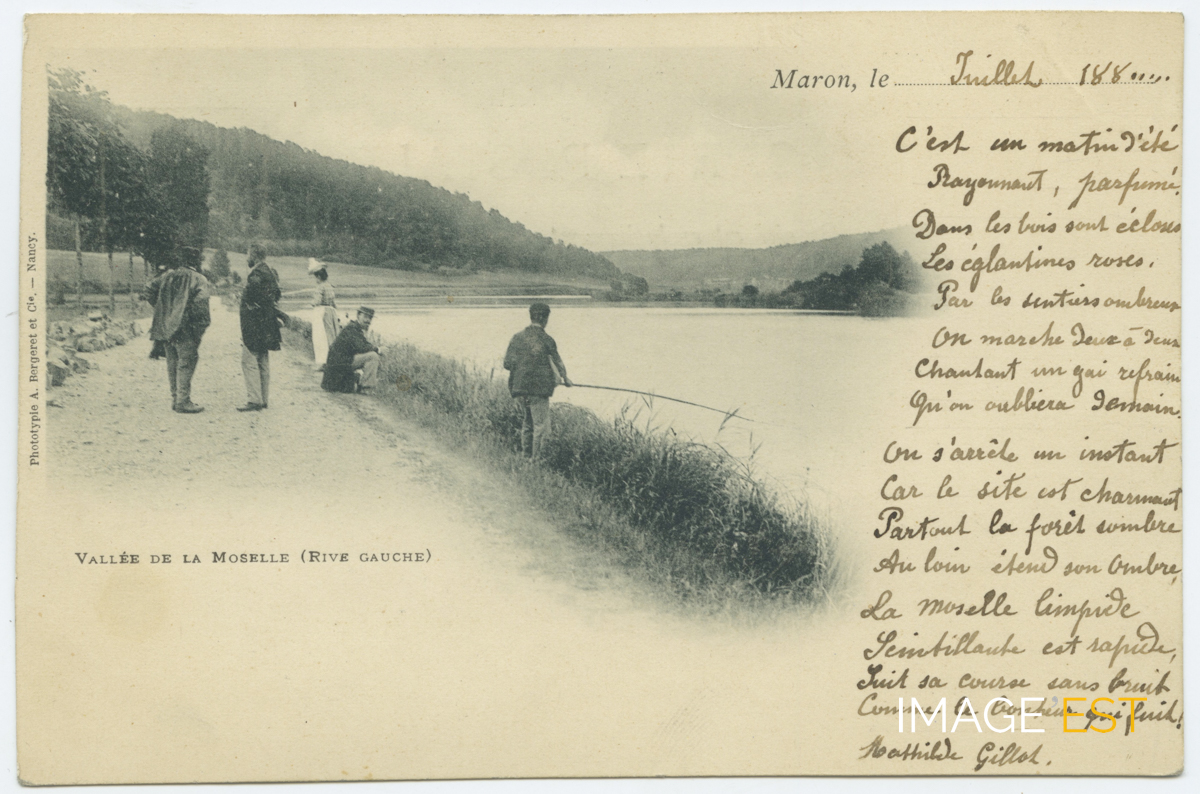 Maron, le Juillet 188.....
C'est un matin d'été
Rayonnant, parfumé.
Dans les bois sont écloses
Les églantines roses.
Par les sentiers ombreux
On marche deux à deux
Chantant un gai refrain
Qu'on oubliera demain.
On s'arrête un instant
Car le site est charmant
Partout la forêt sombre
Au loin étend son ombre,
La moselle limpide
Scintillante est rapide,
Suit sa course sans bruit
Comme le bonheur qui fuit!
Mathilde Gillot.
Phototypie A. Bergeret et Cie. — Nancy.
Vallée de la Moselle (Rive gauche)
IMAGE EST